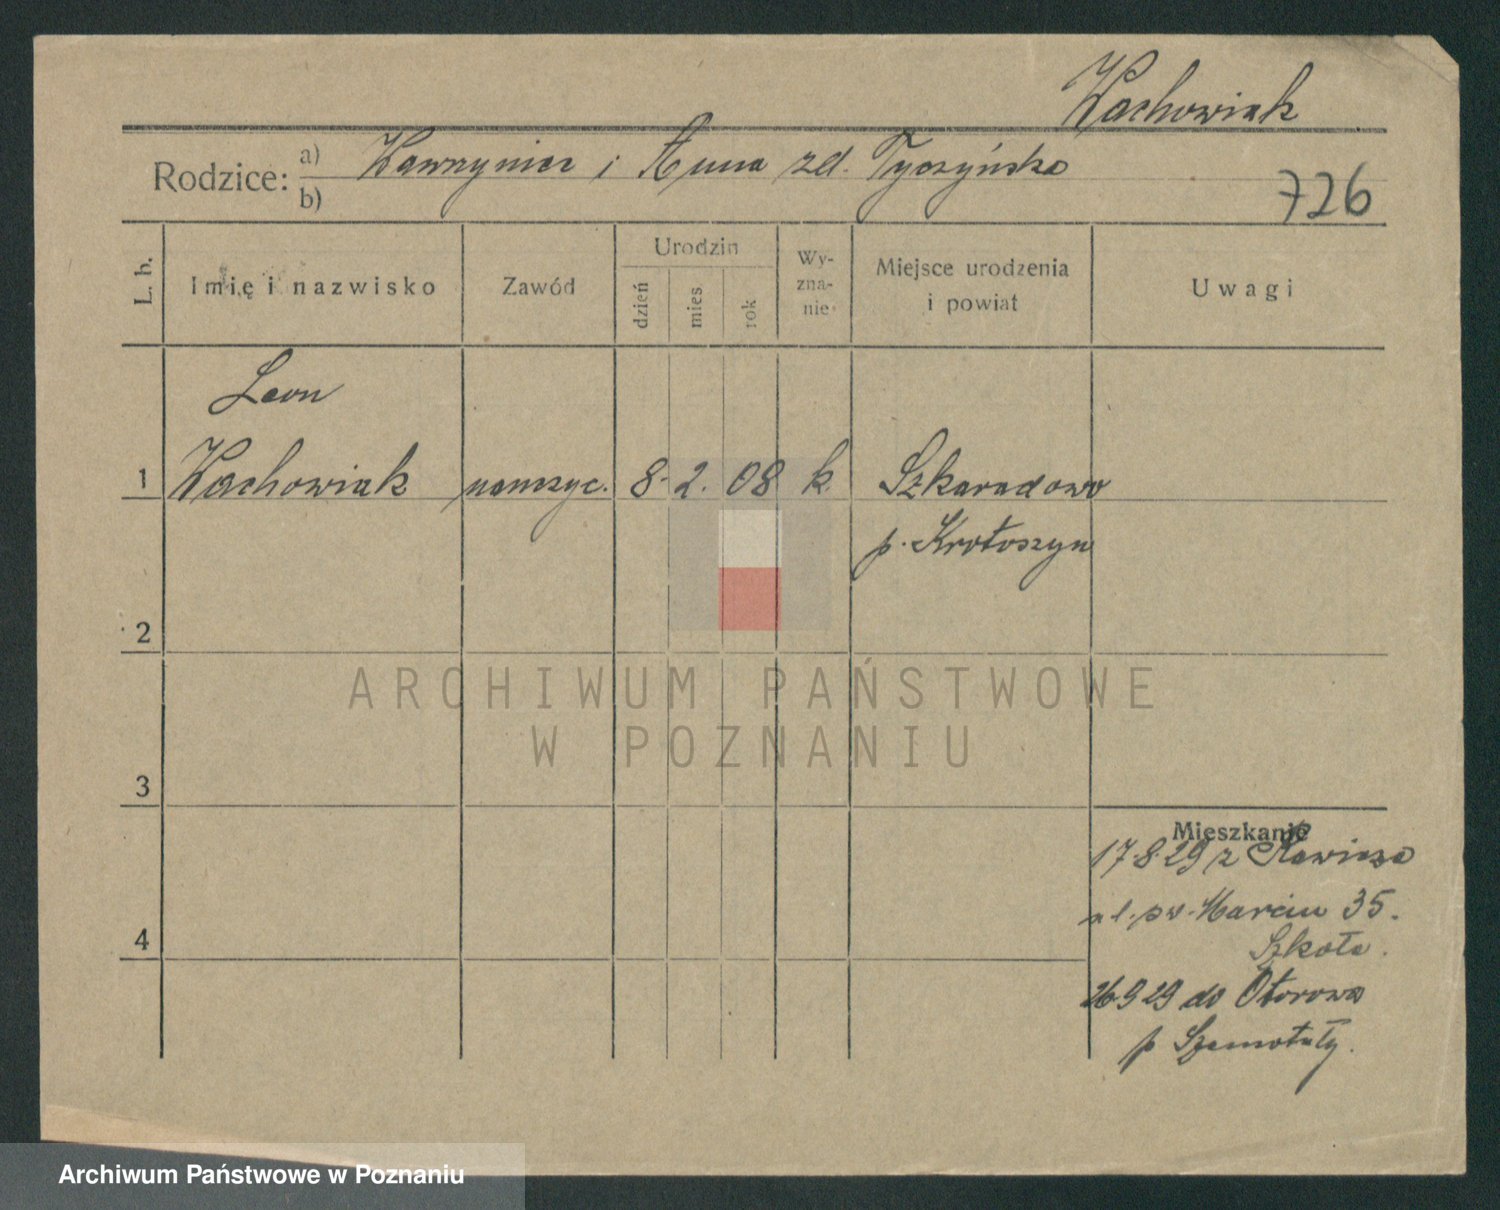 Wachowiak
Rodzice: a) Wawrzyniec i Anna zd. Tyczyńska
b)
726
L. b.
Imię i nazwisko
Zawód
Urodzin
dzień
mies
rok
Wy-
zna-
nie
Miejsce urodzenia
i powiat
Uwagi
Leon
1 Wachowiak nauczyc. 8. 2. 08 k. Szkaradowo
p. Krotoszyn
2
ARCHIWUM PAŃSTWOWE
W POZNANIU
3
Mieszkanie
17.8.29 z Rawicza
ul. św. Marcin 35.
Szkoła.
4
26 9 29 do Otorowa
p Szamotuły.
Archiwum Państwowe w Poznaniu